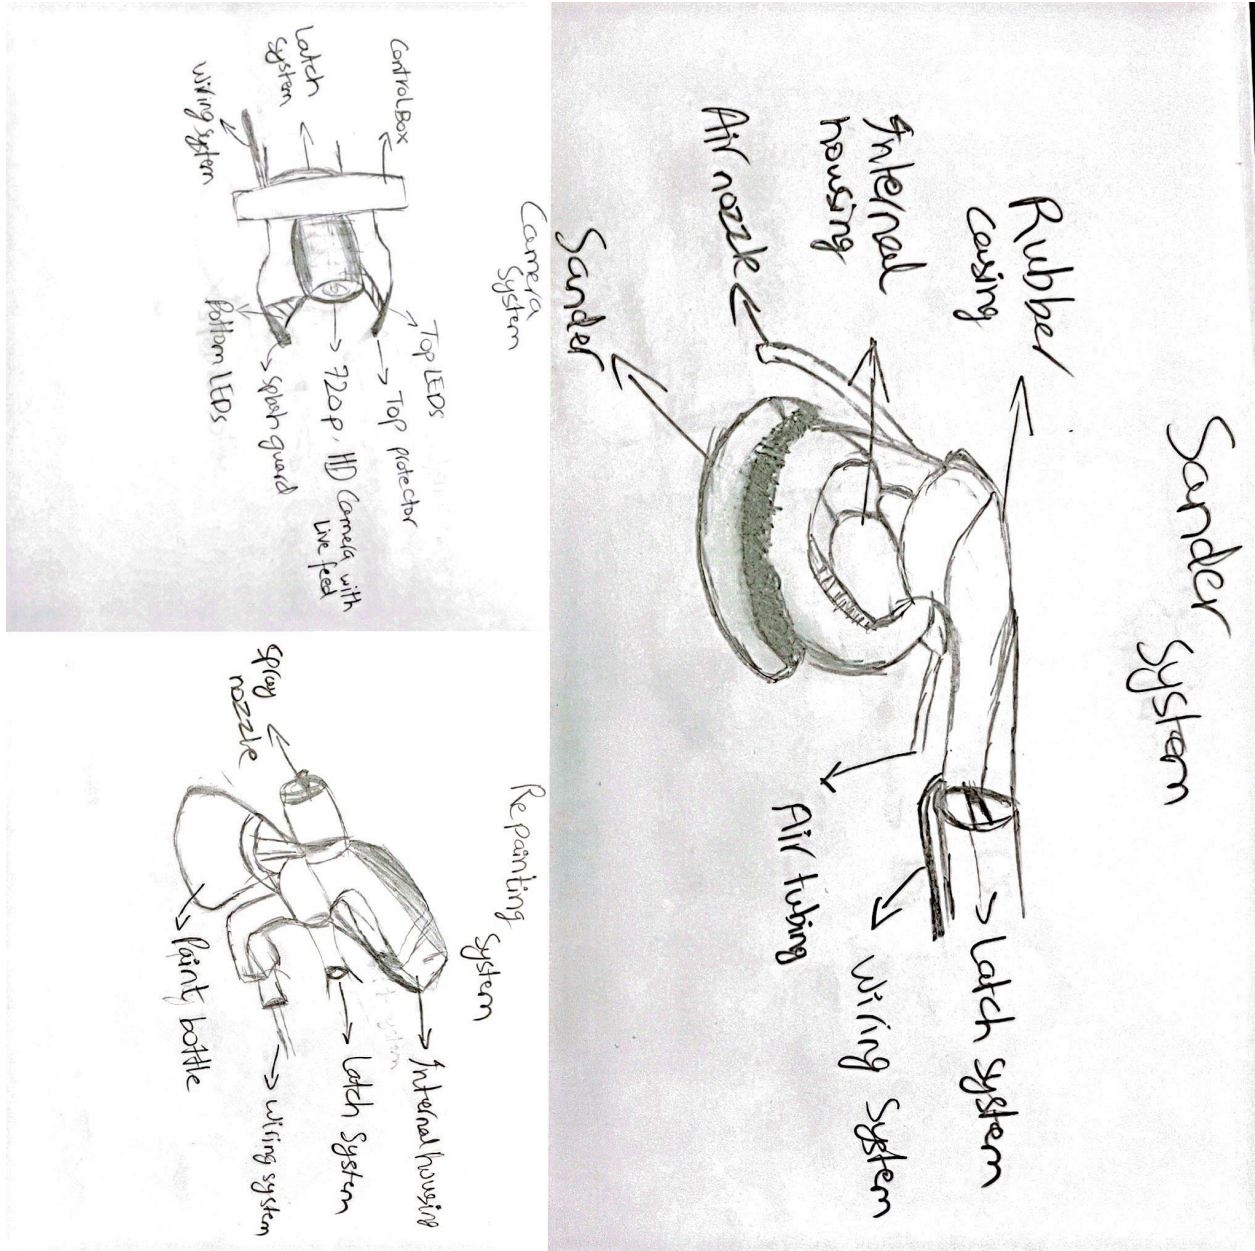 Sander System
Rubber
casing
Internal
housing
Air nozzle
Sander
Latch system
Wiring System
Air tubing
Camera
System
Control Box
Latch
system
Wiring system
Top LEDs
Top protector
720p, HD Camera with
Live feed
Splash guard
Bottom LEDs
Repainting
System
Spray
nozzle
Internal housing
Latch System
Wiring system
Paint bottle